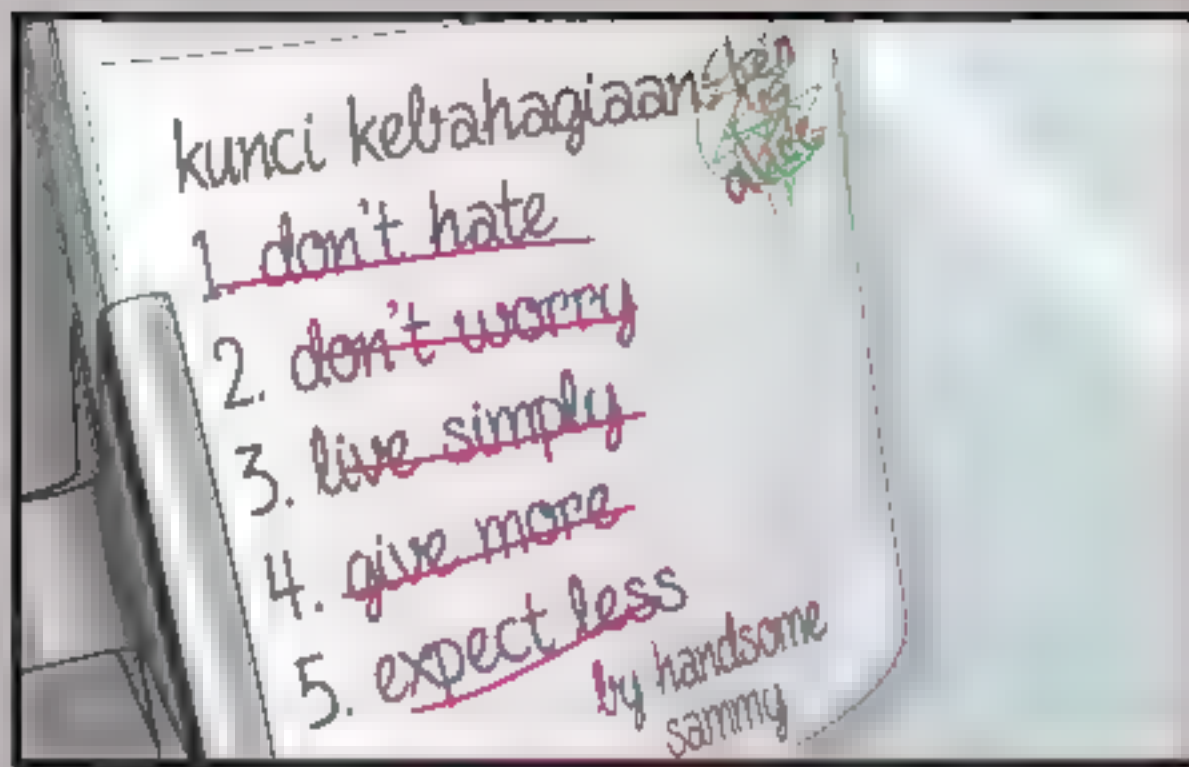 kunci kebahagiaan
1. don't hate
2. don't worry
3. live simply
4. give more
5. expect less
by handsome
sammy